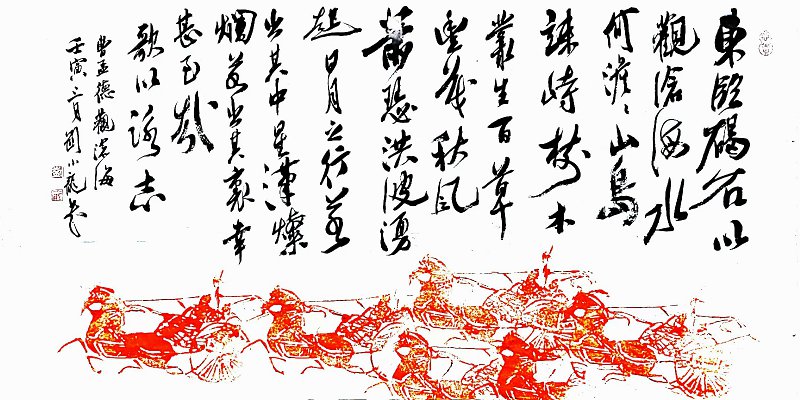 東臨碣石以
觀滄海水
何澹〻山島
竦峙樹木
叢生百草
豐茂秋風
蕭瑟洪波湧
起日月之行若
出其中星漢燦
爛若出其裏幸
甚至哉
歌以詠志
曹孟德觀滄海
壬寅三月劉小龍書